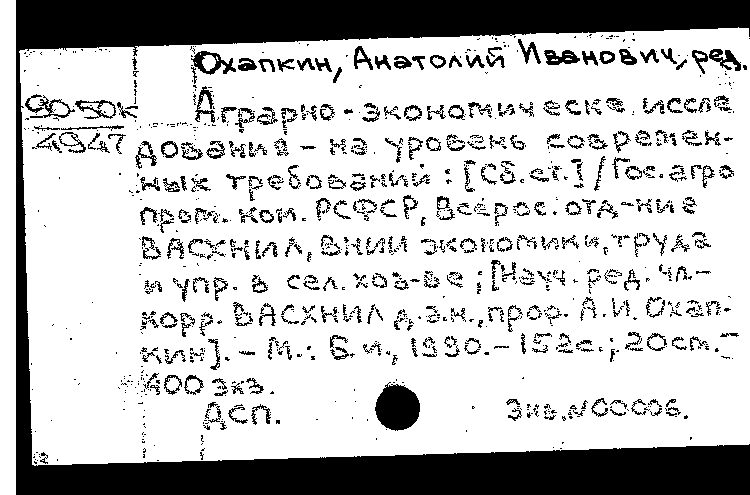 Охапкин, Анатолий Иванович, ред.
90-50к
4947
Аграрно-экономическе иссле
дования – на уровень современ-
ных требований : [Сб.ст.] / Гос.агро
пром. ком. РСФСР, Всерос. отд-ние
ВАСХНИЛ, ВНИИ экономики, труда
и упр. в сел. хоз-ве ; [Науч. ред. чл.-
корр. ВАСХНИЛ д.э.н., проф. А.И. Охап-
кин]. – М. : Б. и., 1990. – 152с. ; 20см. –
400 экз.
ДСП.
Экз.N00006.